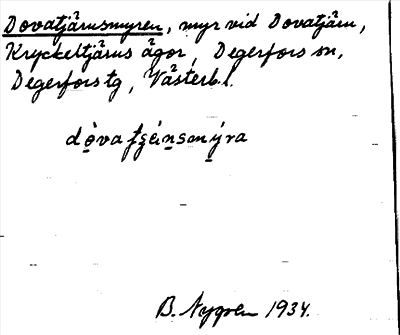 Dovatjärnsmyren, myr vid Dovatjärn,
Kryckeltjärns ägor, Degerfors sn,
Degerfors tg, Västerb. l.
B. Nygren 1934.